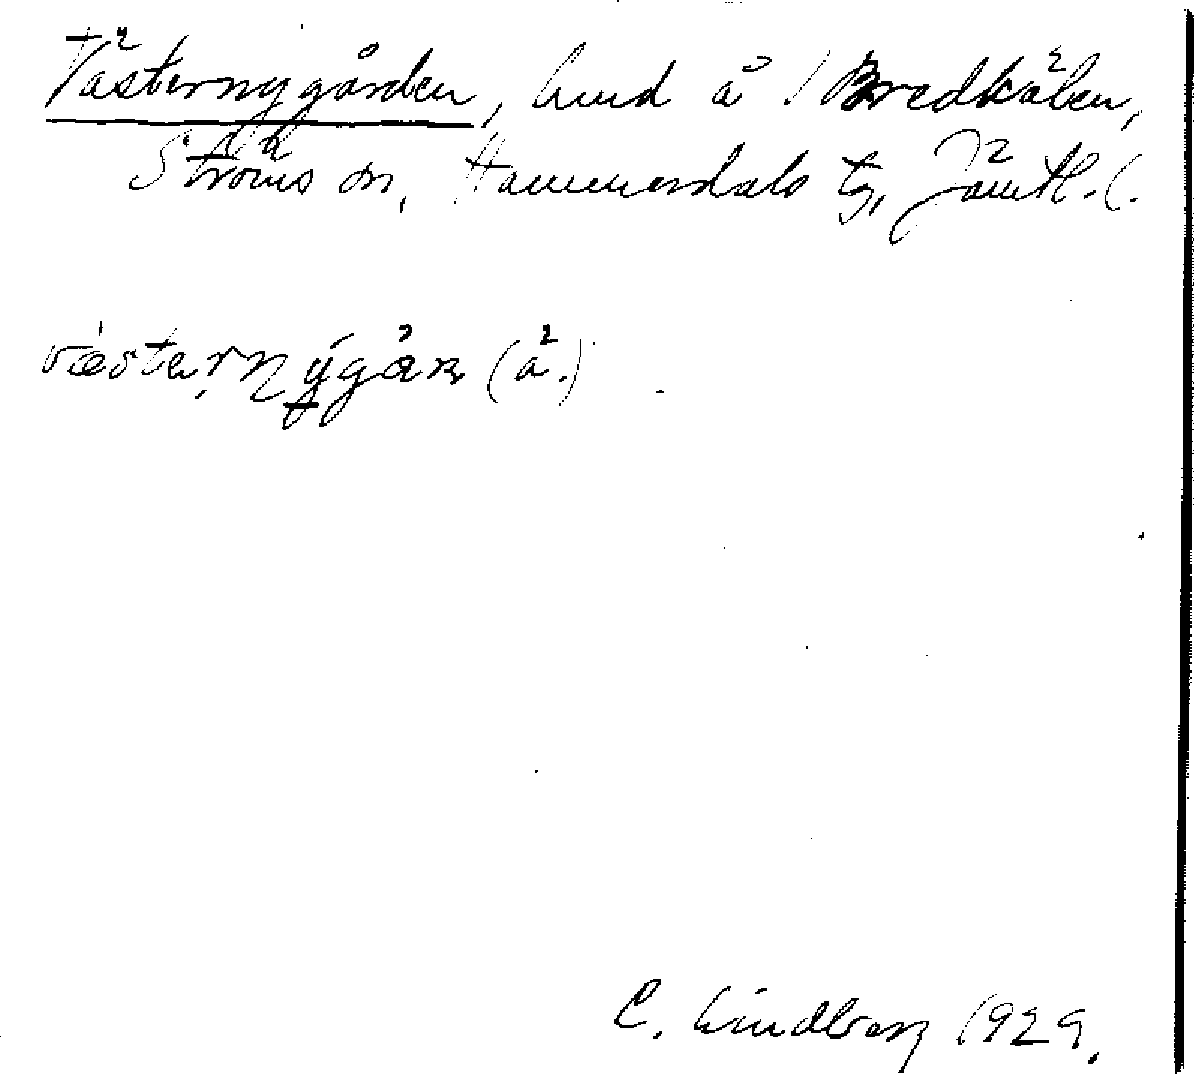 Västernygården, hmd å 1 Bredkälen,
Ströms sn, Hammerdals tg, Jämtl. l.
västernýgårn (å.)
C. Lindberg 1929.